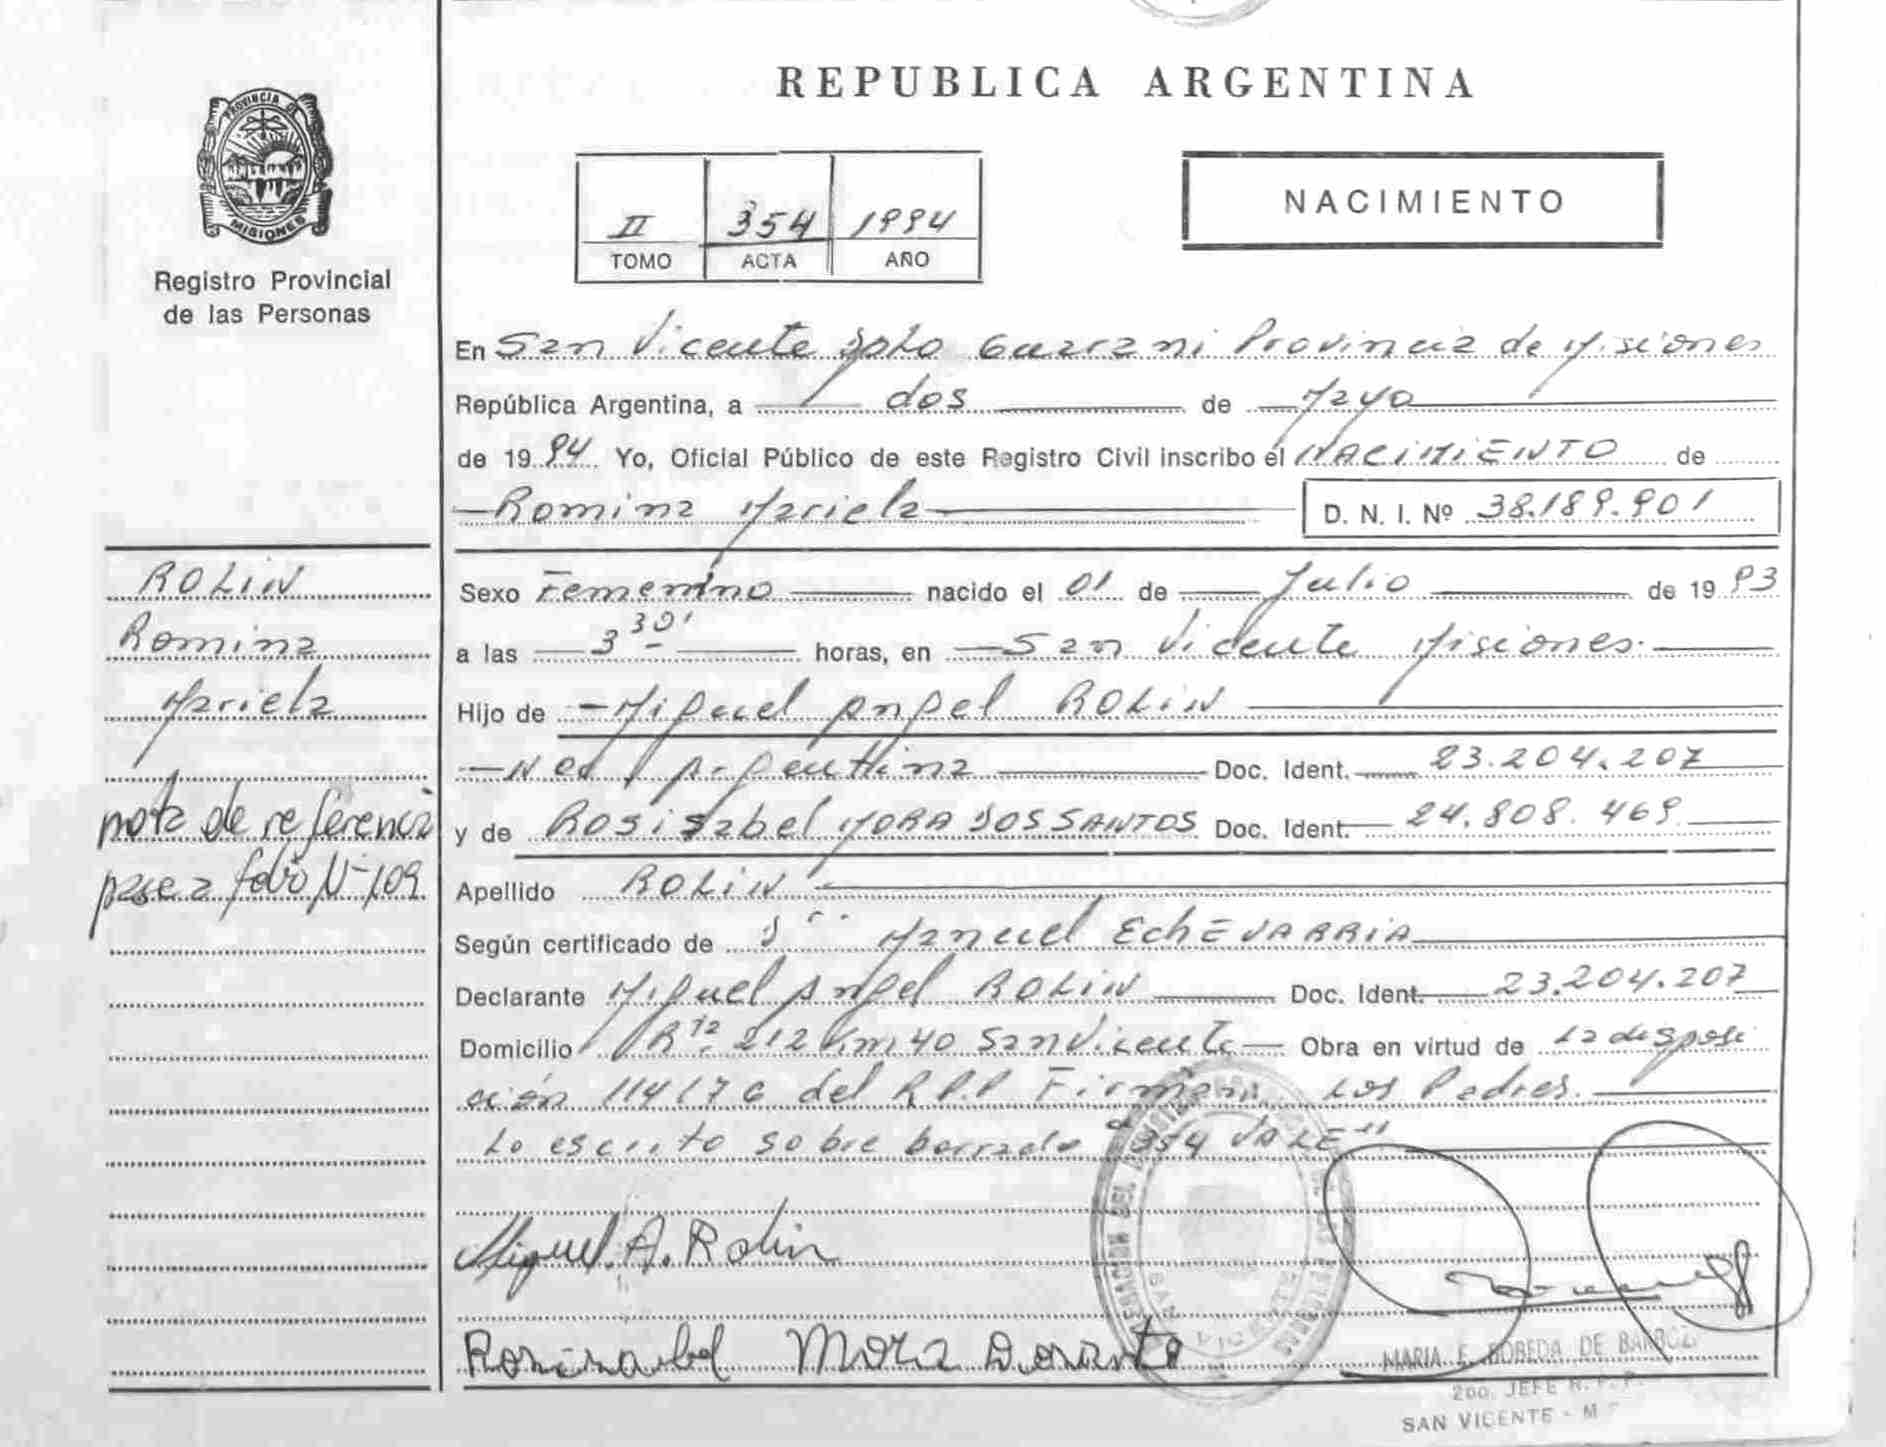 PROVINCIA DE
MISIONES
Registro Provincial
de las Personas
REPUBLICA ARGENTINA
II 354 1994
TOMO ACTA AÑO
NACIMIENTO
En San Vicente Dpto Guarani Provincia de Misiones
República Argentina, a dos de Mayo
de 19 94 Yo, Oficial Público de este Registro Civil inscribo el NACIMIENTO de
Romina Mariela D. N. I. Nº 38.189.901
Sexo Femenino nacido el 01 de Julio de 19 93
a las 3 30' horas, en San Vicente Misiones.
Hijo de Miguel Angel ROLIN
Nac Argentina Doc. Ident. 23.204.207
y de Rosisabel MORA DOS SANTOS Doc. Ident. 24.808.469
Apellido ROLIN
Según certificado de Manuel EChEVARRIA
Declarante Miguel Angel ROLIN Doc. Ident. 23.204.207
Domicilio Rta 212 Km 40 San Vicente Obra en virtud de La disposi
ción 114/76 del R.P.P Firman Los Padres.
Lo escrito sobre borrado "354 VALE"
Miguel A. Rolin
Mora
MARIA E. BOBEDA DE
2do. JEFE R. P. P.
SAN VICENTE - M
ROLIN
Romina
Mariela
nota de referencia
pase a folio Nº 109